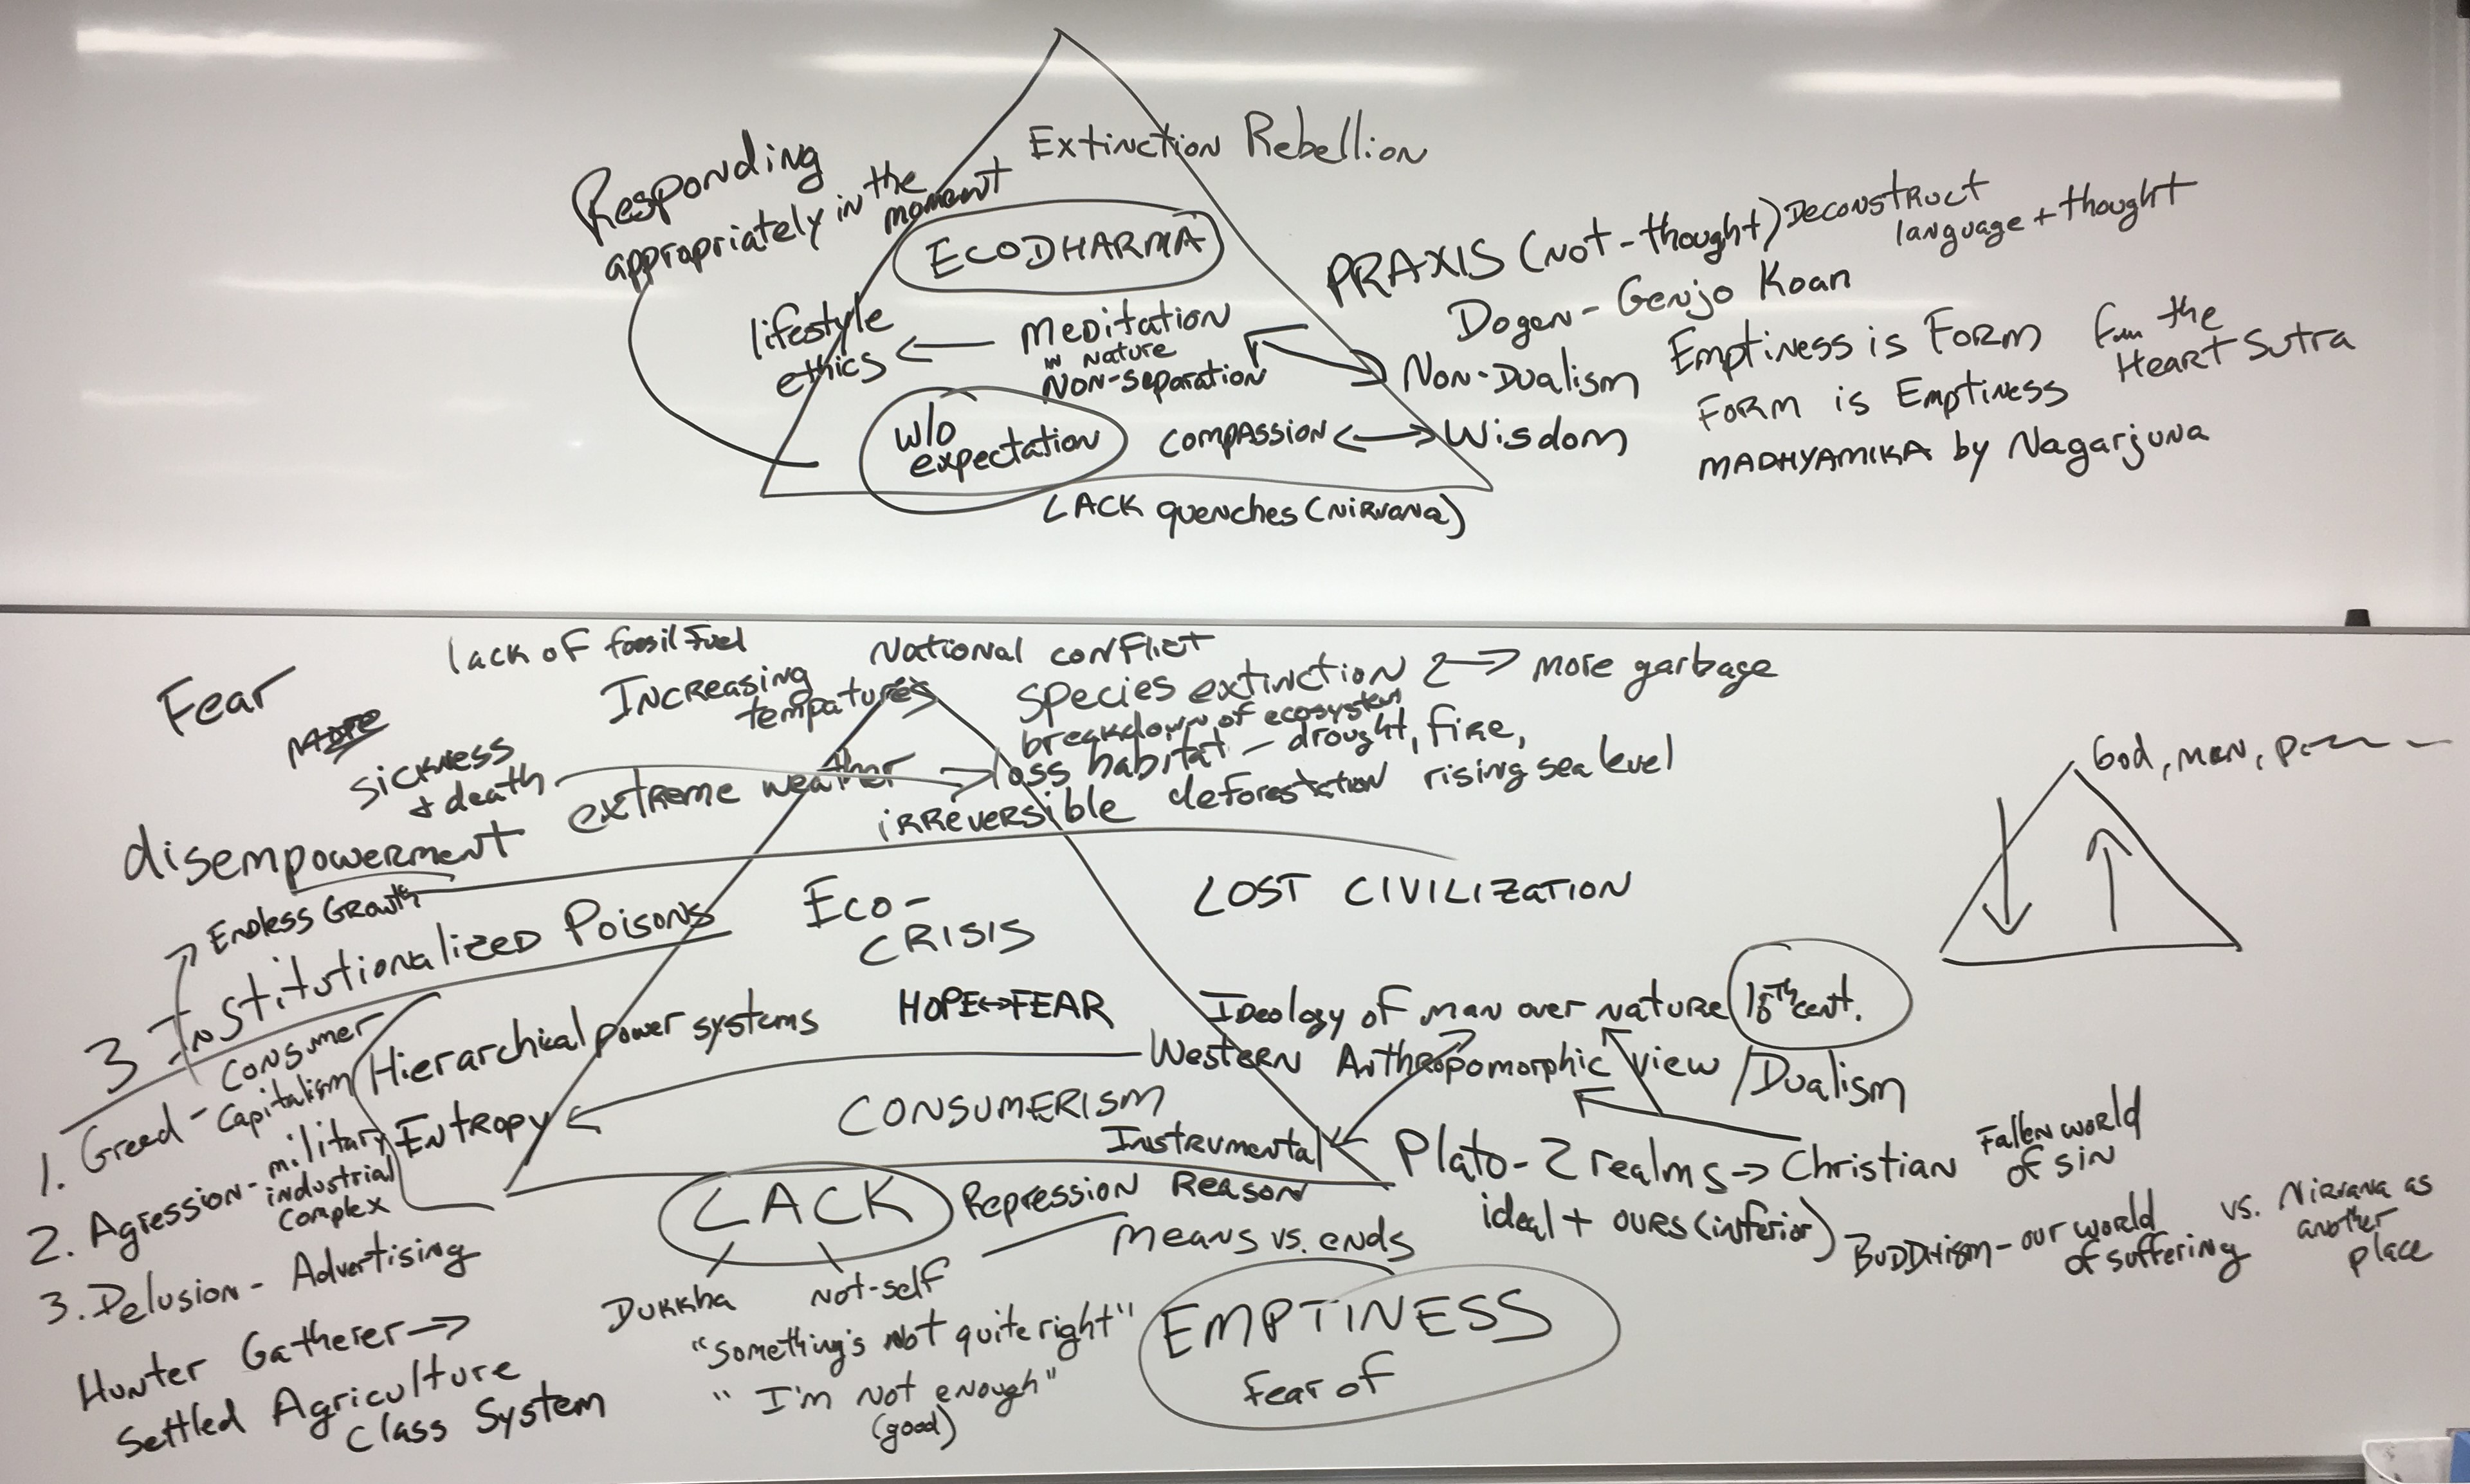 Extinction Rebellion
Responding
appropriately in the
moment
ECODHARMA
PRAXIS (not-thought) Deconstruct
language + thought
Dogen - Genjo Koan
lifestyle
ethics
Meditation
in Nature
Non-separation
Non-Dualism
Emptiness is Form
Form is Emptiness
the
Heart Sutra
w/o
expectation
compassion
Wisdom
MADHYAMIKA by Nagarjuna
LACK quenches (Nirvana)
lack of fossil fuel
National conflict
Fear
Increasing
tempatures
species extinction
more garbage
More
breakdown of ecosystem
sickness
+ death
extreme weather
loss habitat - drought, fire,
irreversible
deforestation
rising sea level
God, man,
disempowerment
Endless Growth
Eco-
CRISIS
LOST CIVILIZATION
3 Institutionalized Poisons
HOPE ↔ FEAR
Ideology of man over nature
18th cent.
Hierarchical power systems
Western Anthropomorphic View / Dualism
1. Greed - Consumer
Capitalism
Entropy
CONSUMERISM
Instrumental
Reason
Plato - 2 realms → Christian
Fallen world
of sin
ideal + ours (inferior)
2. Agression - military
industrial
complex
LACK
Repression
Means vs. ends
Buddhism - our world
of suffering
vs. Nirvana as
another
place
3. Delusion - Advertising
Dukkha
not-self
"Something's not quite right"
"I'm not enough"
(good)
EMPTINESS
fear of
Hunter Gatherer →
Settled Agriculture
Class System